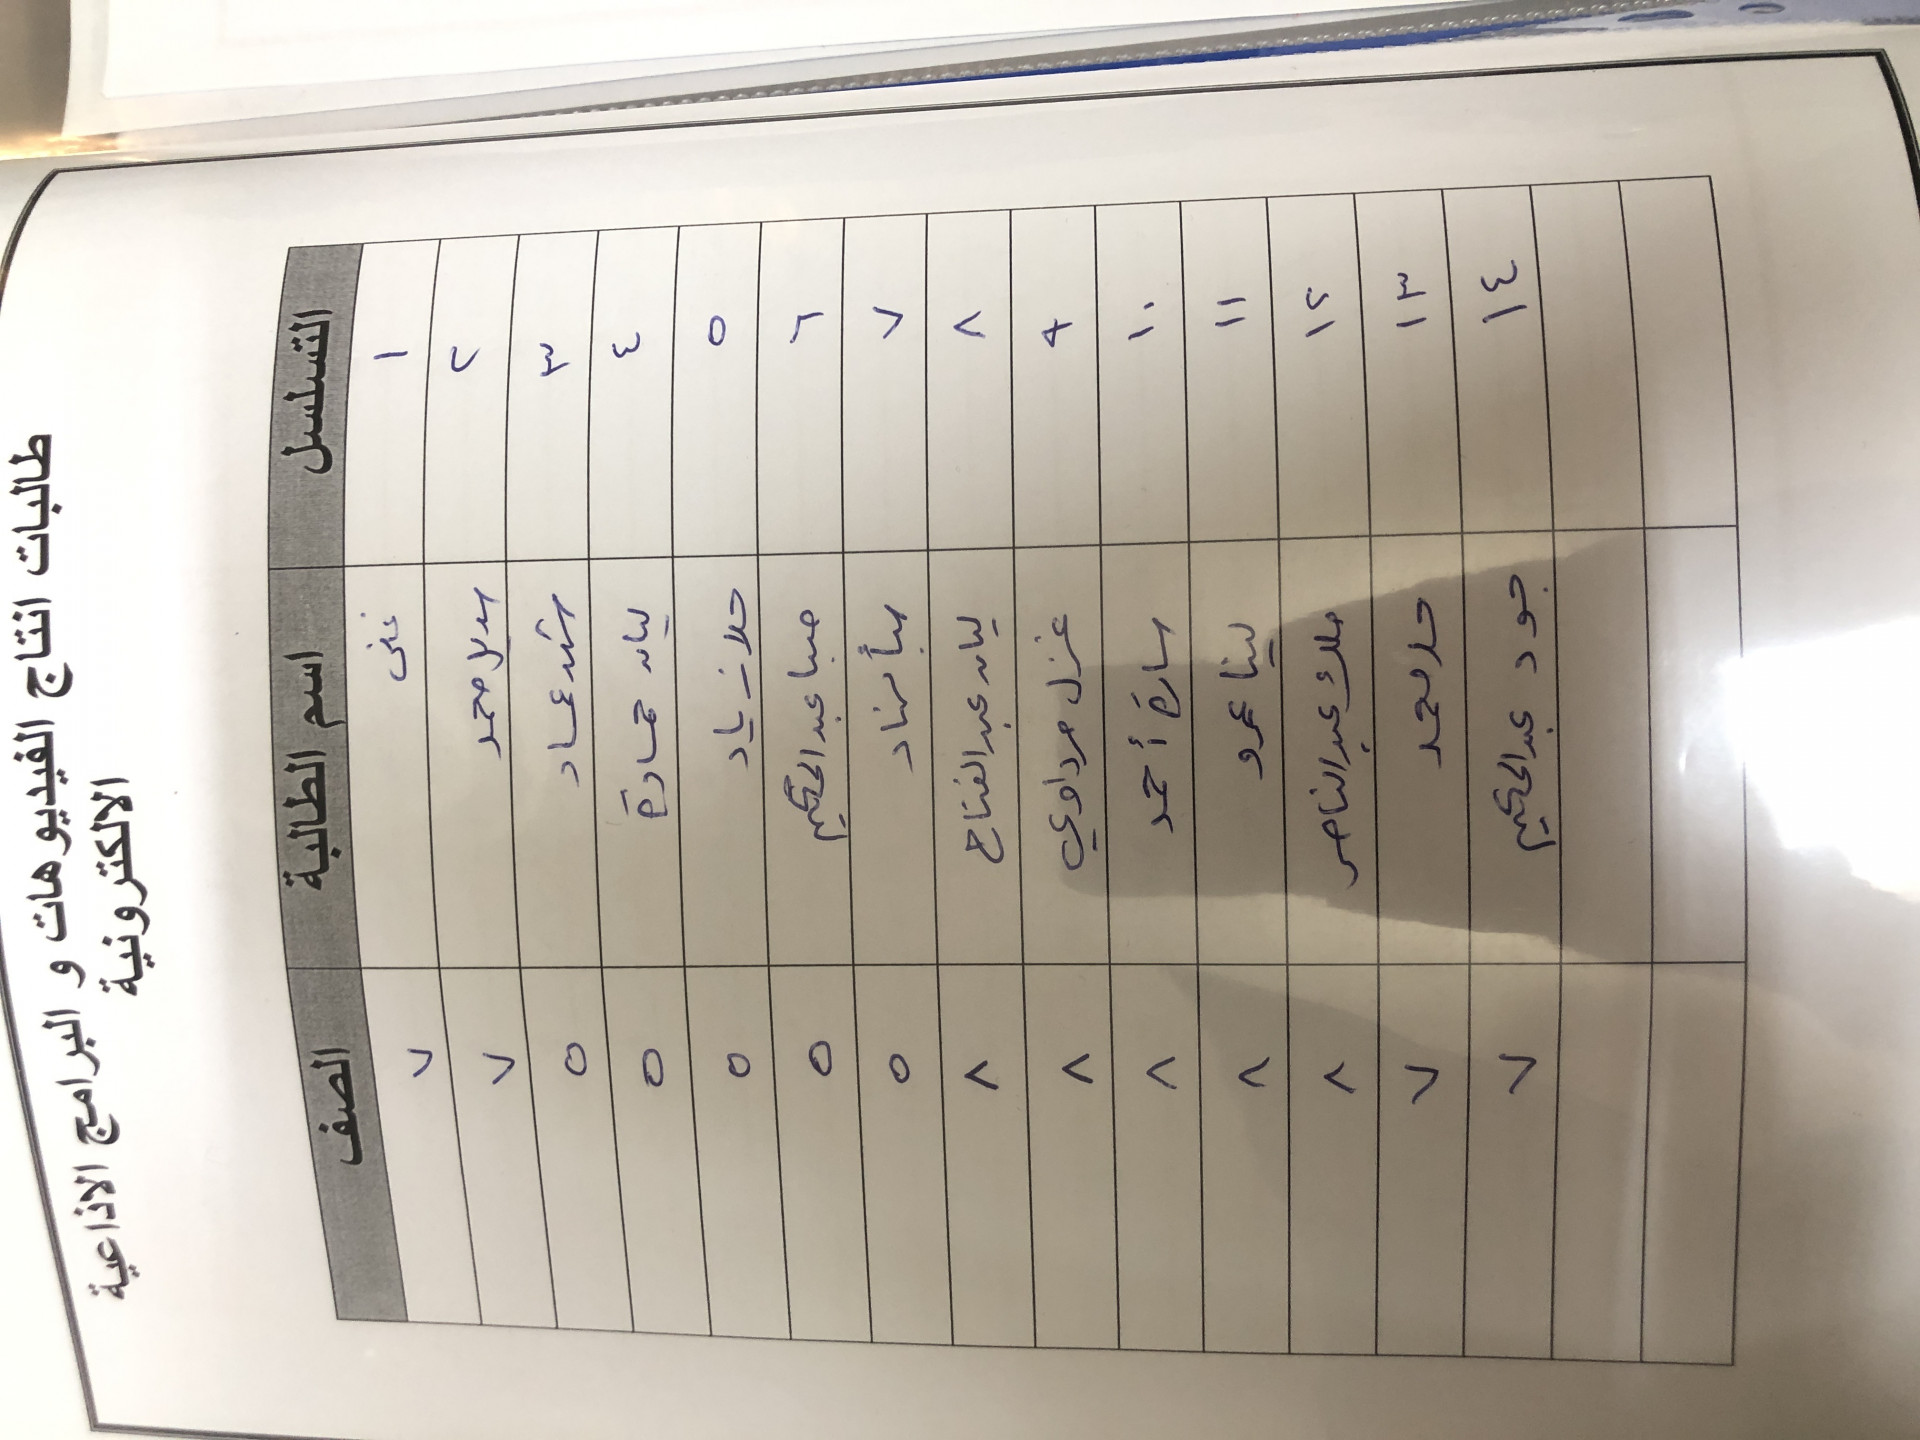 طالبات انتاج الفيديوهات و البرامج الاذاعية
الالكترونية
التسلسل اسم الطالبة الصف
١ ٧
٢ محمد ٧
٣ عماد ٥
٤ ليان حمادة ٥
٥ حلا زياد ٥
٦ صبا عبدالحكيم ٥
٧ سبأ مهند ٥
٨ ليان عبدالفتاح ٨
٩ غزل مرداوي ٨
١٠ سارة أحمد ٨
١١ لينا عمرو ٨
١٢ ملاك عبدالناصر ٨
١٣ حلا محمد ٧
١٤ جود عبدالحكيم ٧